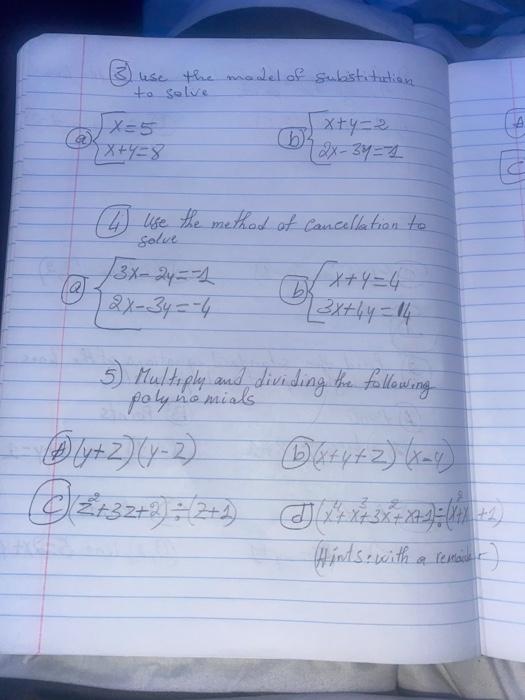 ③ use the model of substitution
to solve
ⓐ { x=5
x+y=8
ⓑ { x+y=2
2x-3y=-1
④ Use the method of Cancellation to
solve
ⓐ { 3x-2y=-1
2x-3y=-4
ⓑ { x+y=4
3x+4y=14
5) Multiply and dividing the following
polynomials
Ⓐ (y+2)(y-2)
ⓑ (x+y+z)(x-y)
Ⓒ (z²+3z+2)÷(z+1)
ⓓ (x⁴+x³+3x²+x+1)÷(x²+x+1)
(Hints: with a remainder)
A
C